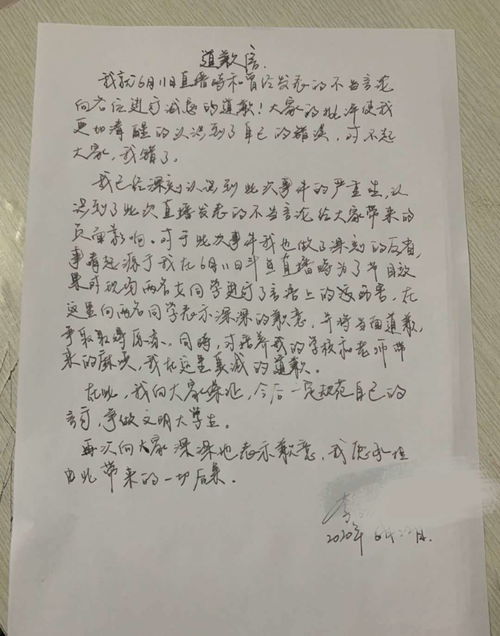 道歉信
我就6月11日直播时和曾经发表的不当言论
向各位进行诚恳的道歉！大家的批评使我
更加清醒的认识到了自己的错误，对不起
大家，我错了。
我已经深刻认识到此次事件的严重性，认
识到了此次直播发表的不当言论给大家带来的
负面影响。对于此次事件我也做了深刻的反省，
事情起源于我在6月11日斗鱼直播时为了节目效
果对现场两名女同学进行了言语上的伤害，在
这里向两名同学表示深深的歉意，并将当面道歉，
争取取得原谅。同时，对培养我的学校和老师带
来的麻烦，我在这里真诚的道歉。
在此，我向大家保证，今后一定规范自己的
言行，争做文明大学生。
再次向大家深深地表示歉意，我愿承担
由此带来的一切后果。
李
2020年6月12日.